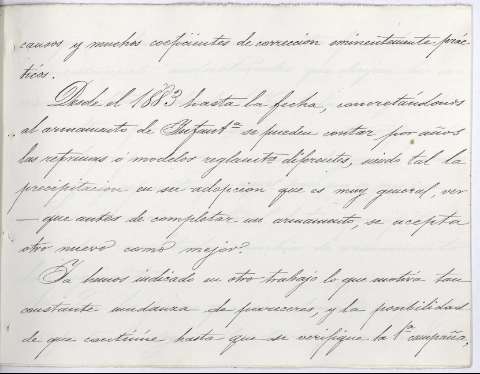 causas y muchos coeficientes de corrección eminentemente prác-
ticos.
Desde el 1883 hasta la fecha, concretándonos
al armamento de Infant.ª se pueden contar por años
las reformas ó modelos reglamt.os diferentes, siendo tal la
precipitacion en su adopcion que es muy general, ver
— que antes de completar un armamento, se acepta
otro nuevo como mejor?
Ya hemos indicado en otro trabajo lo que motiva tan
constante mudanza de pareceres, y la posibilidad
de que continúe hasta que se verifique la 1.ª campaña,